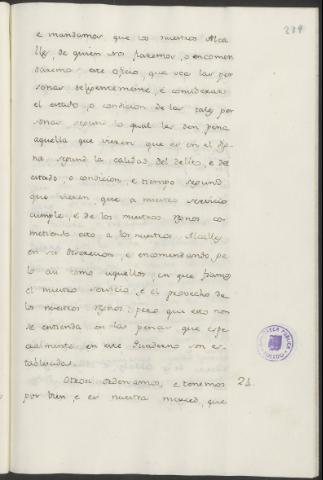 289
e mandamos que los nuestros Alcal
lles, de quien Nos fiaremos, o encomen
daremos este oficio, que vea las per
sonas diligentemente, é considerare
el estado, o condicion de las tales per
sonas segund lo qual les den pena
aquella que vieren que es en el
segund la calidad del delito, e del
estado, o condicion, e tiempo segund
que vieren, que a nuestro servicio
cumple, é de los nuestros Regnos co
metiendo esto a los nuestros Alcalles
en su discrecion, e encomendando
lo asi como aquellos, en que fiamos
el nuestro servicio, é el provecho de
los nuestros Regnos: pero que esto non
se entienda en las penas que espe
cialmente en este Quaderno son es
tablecidas.
Otrosi ordenamos, e tenemos
21.
por bien, e es nuestra merced, que
BIBLIOTECA PUBLICA
TOLEDO